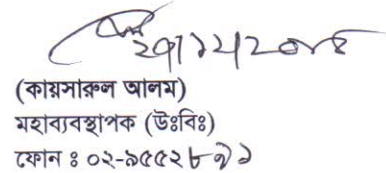 ২৭/১২/২০১৪
(কায়সারুল আলম)
মহাব্যবস্থাপক (উঃবিঃ)
ফোন ঃ ০২-৯৫৫২৮৭১